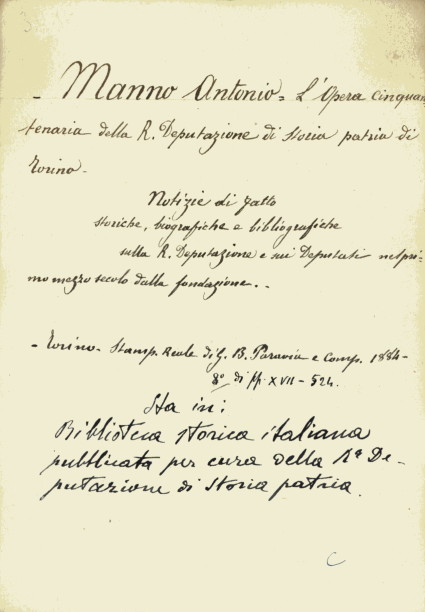 3
- Manno Antonio = L'Opera cinquan
tenaria della R. Deputazione di storia patria di
Torino -
Notizie di fatto
storiche, biografiche e bibliografiche
sulla R. Deputazione e sui Deputati nel pri-
mo mezzo secolo dalla fondazione. . -
- Torino - Stamp. Reale di G. B. Paravia e Comp. 1884 -
8º di pp. XVII - 524.
Sta in:
Biblioteca storica italiana
pubblicata per cura della Rª De-
putazione di Storia patria.
C